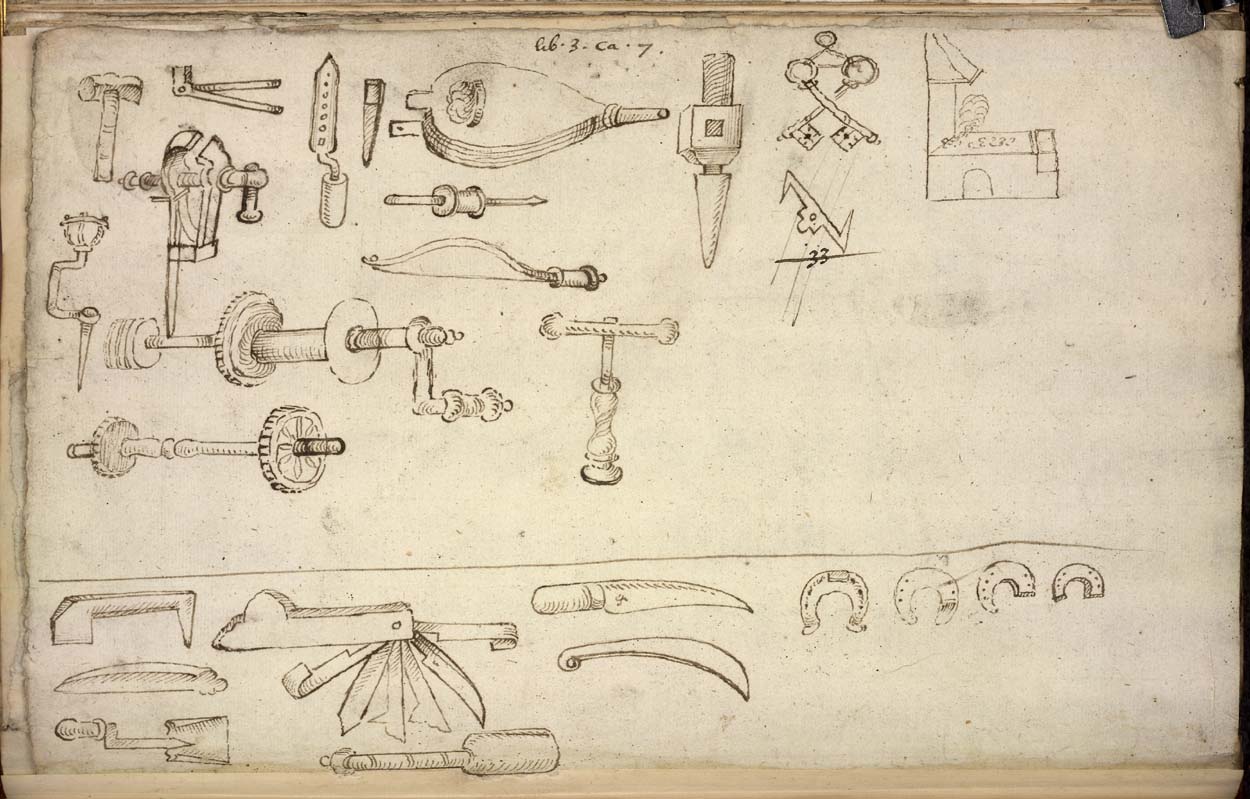 lib · 3 · Ca · 7 .
33